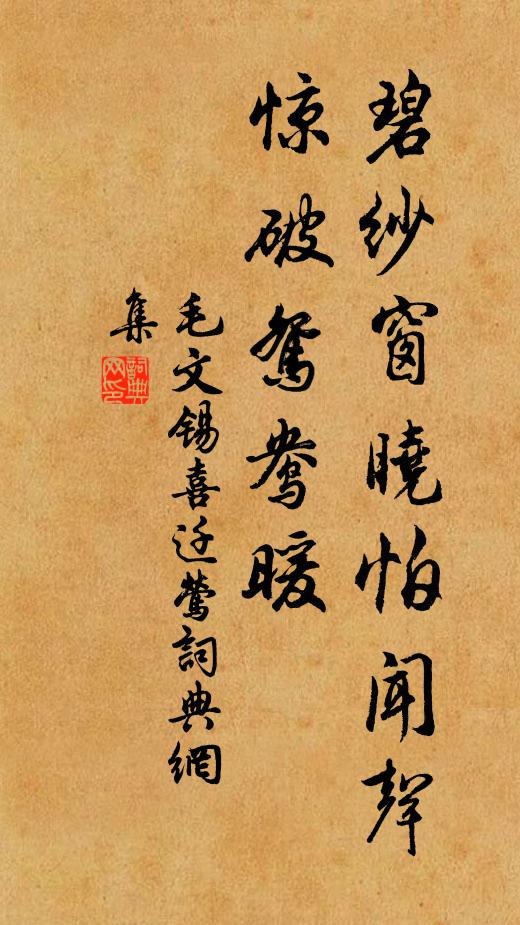 碧纱窗曉怕闻聲
惊破鸳鸯暖
毛文锡喜迁莺詞典網
集
詞典
网印